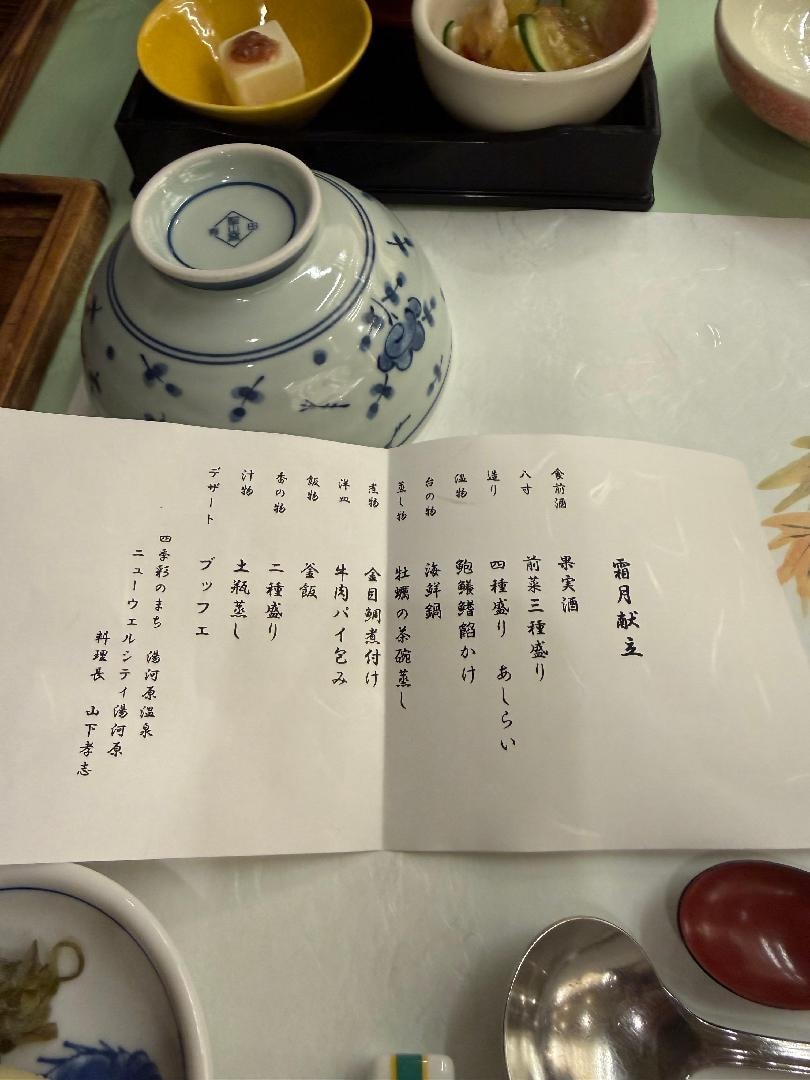 霜月献立
食前酒 果実酒
八寸 前菜三種盛り
造り 四種盛り あしらい
温物 鮑鱶鰭餡かけ
台の物 海鮮鍋
蒸し物 牡蠣の茶碗蒸し
煮物 金目鯛煮付け
洋皿 牛肉パイ包み
飯物 釜飯
香の物 二種盛り
汁物 土瓶蒸し
デザート ブッフェ
四季彩のまち 湯河原温泉
ニューウェルシティ湯河原
料理長 山下孝志